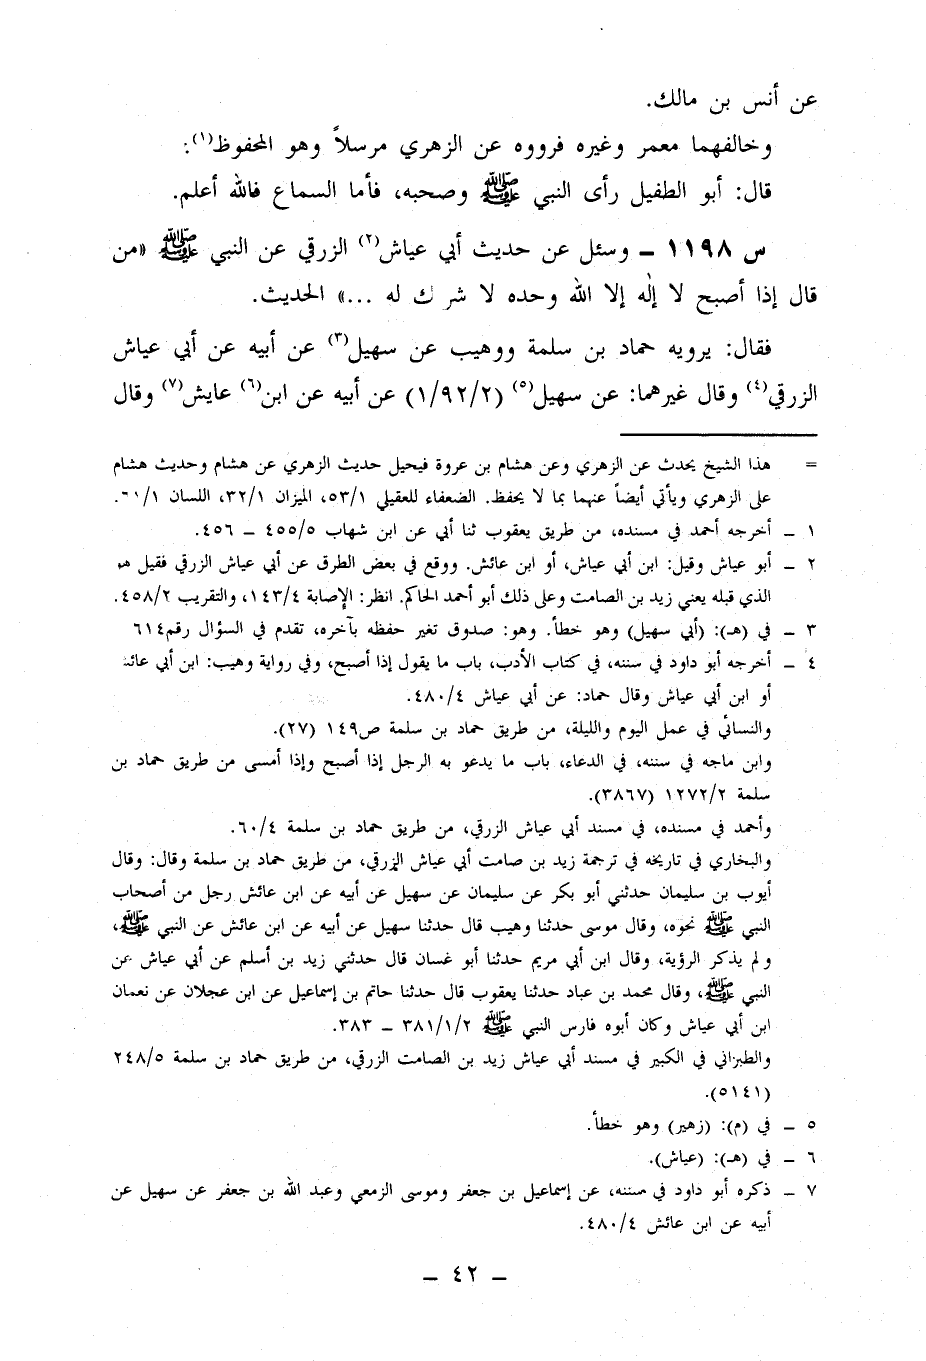 عن أنس بن مالك.
وخالفهما معمر وغيره فرووه عن الزهري مرسلاً وهو المحفوظ(١):
قال: أبو الطفيل رأى النبي ﷺ وصحبه، فأما السماع فالله أعلم.
س ١١٩٨ ـ وسئل عن حديث أبي عياش(٢) الزرقي عن النبي ﷺ «من
قال إذا أصبح لا إلٰه إلا الله وحده لا شر ك له ...» الحديث.
فقال: يرويه حماد بن سلمة ووهيب عن سهيل(٣) عن أبيه عن أبي عياش
الزرقي(٤) وقال غيرهما: عن سهيل(٥) (١/٩٢/٢) عن أبيه عن ابن(٦) عايش(٧) وقال
= هذا الشيخ يحدث عن الزهري وعن هشام بن عروة فيحيل حديث الزهري عن هشام وحديث هشام
على الزهري ويأتي أيضاً عنهما بما لا يحفظ. الضعفاء للعقيلي ٥٣/١، الميزان ٣٢/١، اللسان ٦٠/١.
١ ـ أخرجه أحمد في مسنده، من طريق يعقوب ثنا أبي عن ابن شهاب ٤٥٥/٥ ـ ٤٥٦.
٢ ـ أبو عياش وقيل: ابن أبي عياش، أو ابن عائش. ووقع في بعض الطرق عن أبي عياش الزرقي فقيل هو
الذي قبله يعني زيد بن الصامت وعلى ذلك أبو أحمد الحاكم. انظر: الإصابة ١٤٣/٤، والتقريب ٤٥٨/٢.
٣ ـ في (هـ): (أبي سهيل) وهو خطأ. وهو: صدوق تغير حفظه بآخره، تقدم في السؤال رقم٦١٤
٤ ـ أخرجه أبو داود في سننه، في كتاب الأدب، باب ما يقول إذا أصبح، وفي رواية وهيب: ابن أبي عائـ
أو ابن أبي عياش وقال حماد: عن أبي عياش ٤٨٠/٤.
والنسائي في عمل اليوم والليلة، من طريق حماد بن سلمة ص١٤٩ (٢٧).
وابن ماجه في سننه، في الدعاء، باب ما يدعو به الرجل إذا أصبح وإذا أمسى من طريق حماد بن
سلمة ١٢٧٢/٢ (٣٨٦٧).
وأحمد في مسنده، في مسند أبي عياش الزرقي، من طريق حماد بن سلمة ٦٠/٤.
والبخاري في تاريخه في ترجمة زيد بن صامت أبي عياش الزرقي، من طريق حماد بن سلمة وقال: وقال
أيوب بن سليمان حدثني أبو بكر عن سليمان عن سهيل عن أبيه عن ابن عائش رجل من أصحاب
النبي ﷺ نحوه، وقال موسى حدثنا وهيب قال حدثنا سهيل عن أبيه عن ابن عائش عن النبي ﷺ،
ولم يذكر الرؤية، وقال ابن أبي مريم حدثنا أبو غسان قال حدثني زيد بن أسلم عن أبي عياش عن
النبي ﷺ، وقال محمد بن عباد حدثنا يعقوب قال حدثنا حاتم بن إسماعيل عن ابن عجلان عن نعمان
ابن أبي عياش وكان أبوه فارس النبي ﷺ ٣٨١/١/٢ ـ ٣٨٣.
والطبراني في الكبير في مسند أبي عياش زيد بن الصامت الزرقي، من طريق حماد بن سلمة ٢٤٨/٥
(٥١٤١).
٥ ـ في (م): (زهير) وهو خطأ.
٦ ـ في (هـ): (عياش).
٧ ـ ذكره أبو داود في سننه، عن إسماعيل بن جعفر وموسى الزمعي وعبد الله بن جعفر عن سهيل عن
أبيه عن ابن عائش ٤٨٠/٤.
ـ ٤٢ ـ